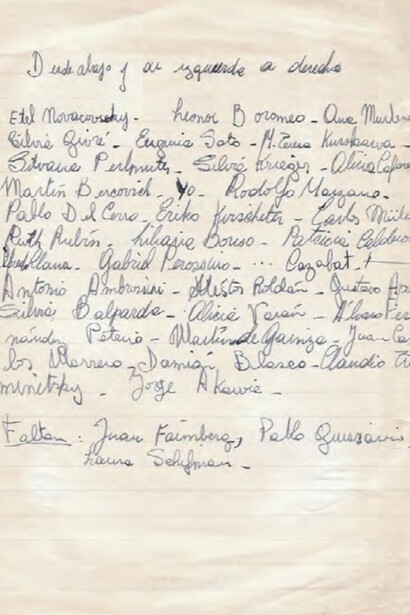 Desde abajo y de izquierda a derecha
Etel Novacovsky - Leonor Boromeo - Ana
Silvia Givré - Eugenia Soto - M. Teresa Kurokawa -
Silvana Perlmuter - Silvia Krieger - Alicia
Martín Bercovich - yo - Rodolfo Mazzano -
Pablo Del Cerro - Eriko Kirscheter - Carlos
Ruth Rubín - Liliana Bonso - Patricia
Gabriel Perossino - ... Cazabat!
Antonio Ambrossini - Roldán - Gustavo
Silvia Balparda - Alicia Varán - Alvaro
nández Peterio - Martín de Gainza - Juan
los Marrero - Damián Blasco - Claudio
minetzky - Jorge Akawie -
Faltan: Juan Faimberg, Pablo
Laura Schifman -